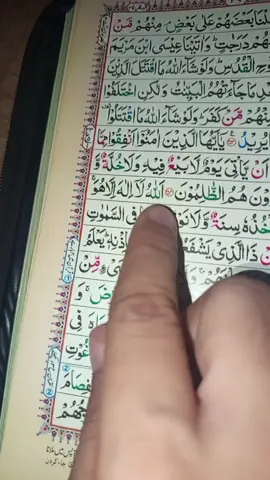 لْنَا بَعْضَهُمْ عَلٰى بَعْضٍ ۘ مِنْهُمْ مَّنْ
هُمْ دَرَجٰتٍ ؕ وَاٰتَيْنَا عِيْسَى ابْنَ مَرْيَمَ
وْحِ الْقُدُسِ ؕ وَلَوْ شَآءَ اللّٰهُ مَا اقْتَتَلَ الَّذِيْنَ
مَا جَآءَتْهُمُ الْبَيِّنٰتُ وَلٰكِنِ اخْتَلَفُوْا
مِنْهُمْ مَّنْ كَفَرَ ؕ وَلَوْ شَآءَ اللّٰهُ مَا اقْتَتَلُوْا
يُرِيْدُ يٰۤاَيُّهَا الَّذِيْنَ اٰمَنُوْۤا اَنْفِقُوْا مِمَّا
اَنْ يَّاْتِيَ يَوْمٌ لَّا بَيْعٌ فِيْهِ وَلَا خُلَّةٌ وَّ
وْنَ هُمُ الظّٰلِمُوْنَ اَللّٰهُ لَاۤ اِلٰهَ اِلَّا هُوَ
خُذُهٗ سِنَةٌ وَّلَا فِي السَّمٰوٰتِ
نْ ذَا الَّذِيْ يَشْفَعُ اِذْنِهٖ ؕ يَعْلَمُ
مِّنْ
ضَ ۚ وَ
هَ فِي
غُوْتِ
فِصَامَ